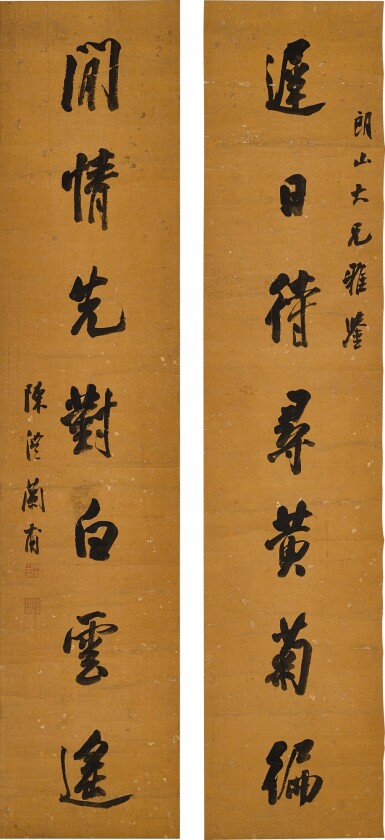 朗山大兄雅鑒
遲日待尋黃菊徧
閒情先對白雲遙
陳澧蘭甫